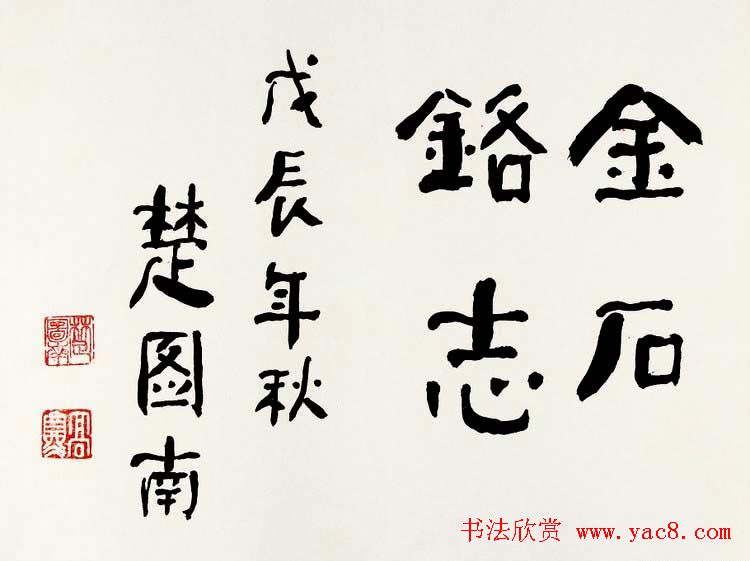 金石
鉻志
戊辰年秋
楚图南
楚圖南
高寒
书法欣赏 www.yac8.com